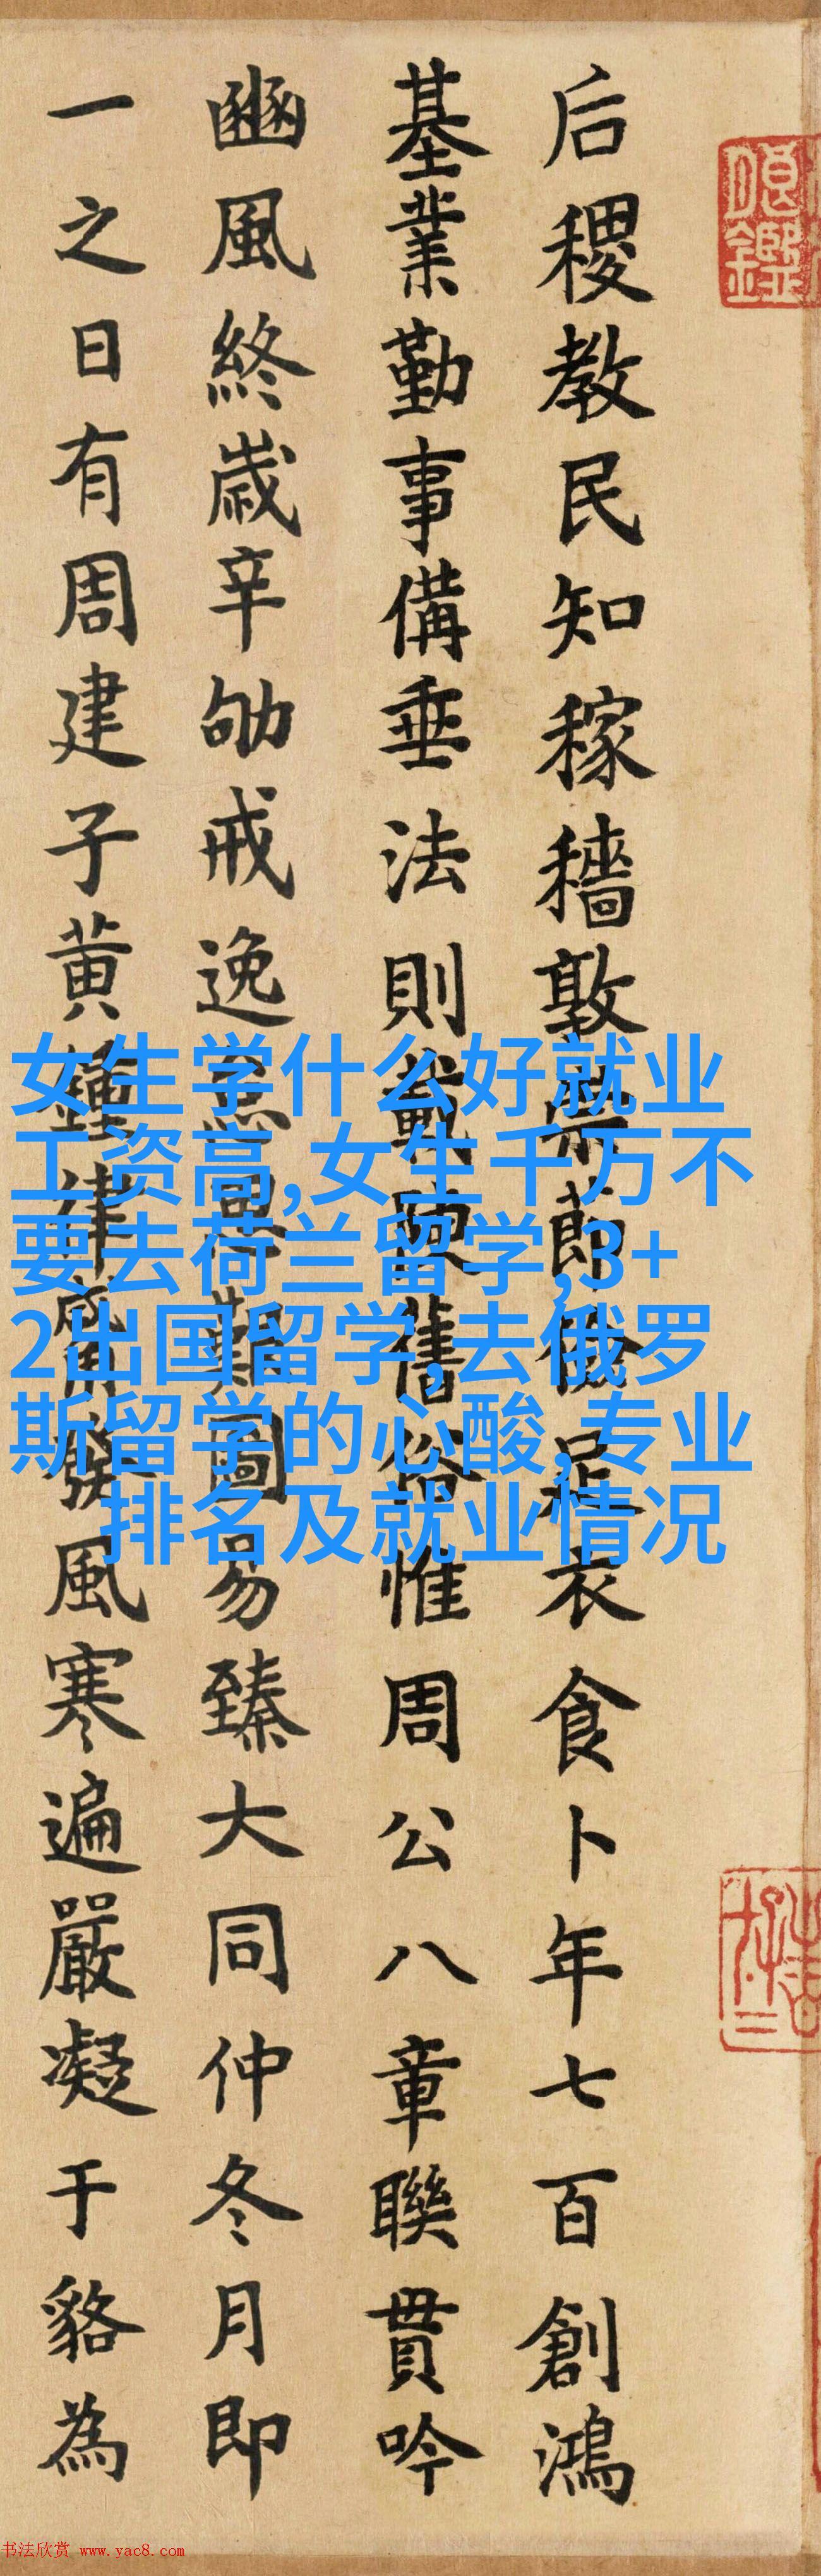 后稷教民知稼穡敦崇節儉足衣食卜年七百創鴻
基業勤事備垂法則載陳舊俗惟周公八章聯貫吟
豳風終歲辛劬戒逸思艱圖易臻大同仲冬月即
一之日有周建子黃鍾律觱發風寒遍嚴凝于貉為
女生学什么好就业
工资高,女生千万不
要去荷兰留学,3+
2出国留学,去俄罗
斯留学的心酸,专业
排名及就业情况
书法欣赏 www.yac8.com